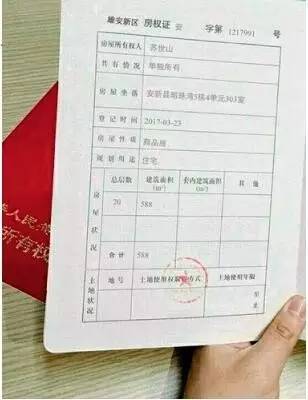 雄安新区 房权证 安 字第 1217991 号
房屋所有权人 苏世山
共有情况 单独所有
房屋坐落 安新县明珠湾5栋4单元303室
登记时间 2017-03-23
房屋性质 商品房
规划用途 住宅
房屋状况 总层数 建筑面积 (m²) 套内建筑面积 (m²) 其他
20 588
合计 588
土地状况 地号 土地使用权取得方式 土地使用年限
至
止
华人民共
所有权